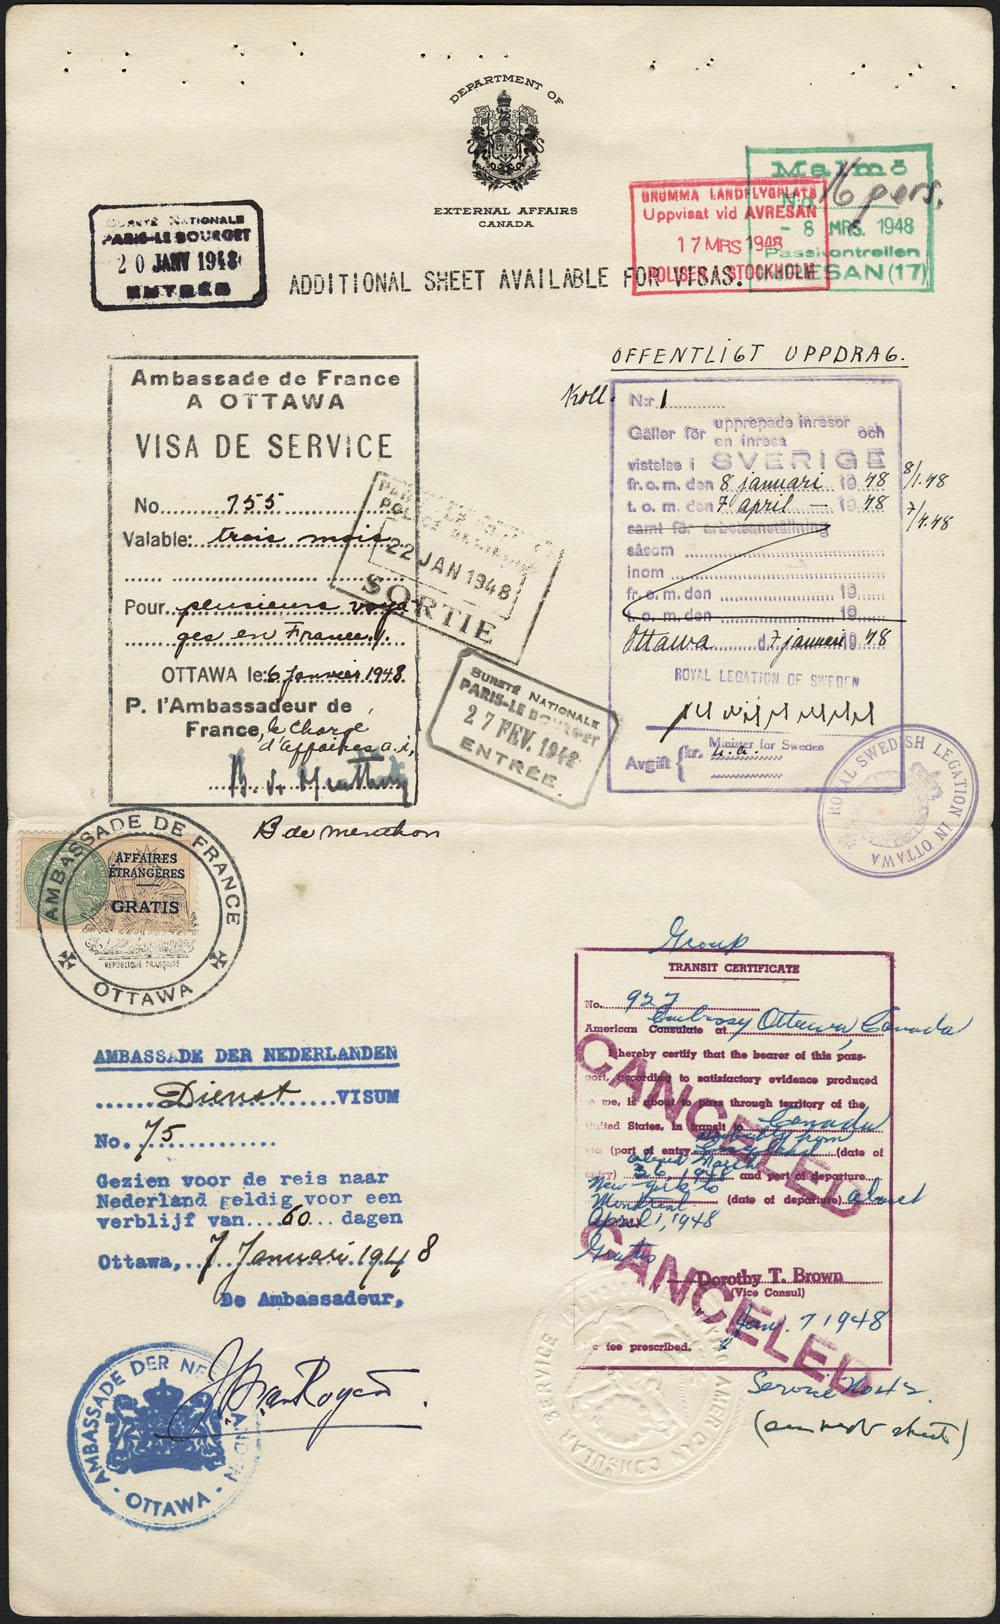 DEPARTMENT OF
EXTERNAL AFFAIRS
CANADA
SURETÉ NATIONALE
PARIS-LE BOURGET
20 JANV 1948
ENTRÉE
BROMMA LANDFLYGPLATS
Uppvisat vid AVRESAN
17 MRS 1948
POLISEN STOCKHOLM
Malmö
N:o 16 pers.
- 8 MRS. 1948
Passkontrollen
RESAN (17)
ADDITIONAL SHEET AVAILABLE FOR VISAS.
Ambassade de France
A OTTAWA
VISA DE SERVICE
No. 755
Valable: trois mois
Pour plusieurs voya
ges en France
OTTAWA le: 6 Janvier 1948
P. l'Ambassadeur de
France, le Chargé
d'affaires a.i,
B de menthon
POLICE
22 JAN 1948
SORTIE
SURETÉ NATIONALE
PARIS-LE BOURGET
27 FEV. 1948
ENTRÉE
OFFENTLIGT UPPDRAG.
Koll.
N:r 1
Gäller för upprepade inresor och
en inresa
vistelse i SVERIGE
fr. o. m. den 8 januari 1948 8/1.48
t. o. m. den 7 april — 1948 7/4.48
samt för arbetsanställning
såsom
inom
fr. o. m. den 19
t. o. m. den 19
Ottawa d. 7 januari 1948
ROYAL LEGATION OF SWEDEN
Minister for Sweden
Avgift { kr.
ROYAL SWEDISH LEGATION IN OTTAWA
AMBASSADE DE FRANCE
OTTAWA
AFFAIRES
ÉTRANGÈRES
GRATIS
RÉPUBLIQUE FRANÇAISE
AMBASSADE DER NEDERLANDEN
Dienst VISUM
No. 75
Gezien voor de reis naar
Nederland geldig voor een
verblijf van 60 dagen
Ottawa, 7 Januari 1948
De Ambassadeur,
J. van Royen
AMBASSADE DER NEDERLANDEN
OTTAWA
Group
TRANSIT CERTIFICATE
No. 927
American Consulate at Embassy Ottawa, Canada
I hereby certify that the bearer of this pass-
port, according to satisfactory evidence produced
to me, is about to pass through territory of the
United States, in transit to Canada
via (port of entry (date of
entry) 1948 and port of departure
New York to
Montreal (date of departure) about
April 1, 1948
Gratis
Dorothy T. Brown
(Vice Consul)
Jan. 7 1948
fee prescribed.
CANCELED
CANCELED
Service No 42
(see next sheet)
AMERICAN CONSULAR SERVICE